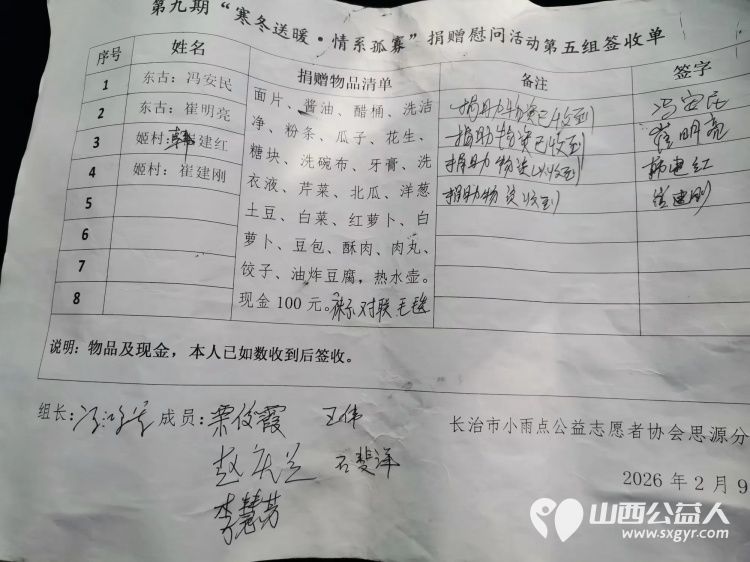 第九期“寒冬送暖·情系孤寡”捐赠慰问活动第五组签收单
序号 姓名 捐赠物品清单 备注 签字
1 东古：冯安民 捐助物资已收到 冯安民
2 东古：崔明亮 捐助物资已收到 崔明亮
3 姬村：韩建红 捐助物资以收到 韩建红
4 姬村：崔建刚 捐助物资收到 崔建刚
5
6
7
8
面片、酱油、醋桶、洗洁
净、粉条、瓜子、花生、
糖块、洗碗布、牙膏、洗
衣液、芹菜、北瓜、洋葱
土豆、白菜、红萝卜、白
萝卜、豆包、酥肉、肉丸、
饺子、油炸豆腐，热水壶。
现金100元。袜子 对联 毛毯
说明：物品及现金，本人已如数收到后签收。
组长： 成员：栗俊霞 王伟
赵 石斐洋
李慧芳
长治市小雨点公益志愿者协会思源分
2026年2月9
山西公益人
www.sxgyr.com